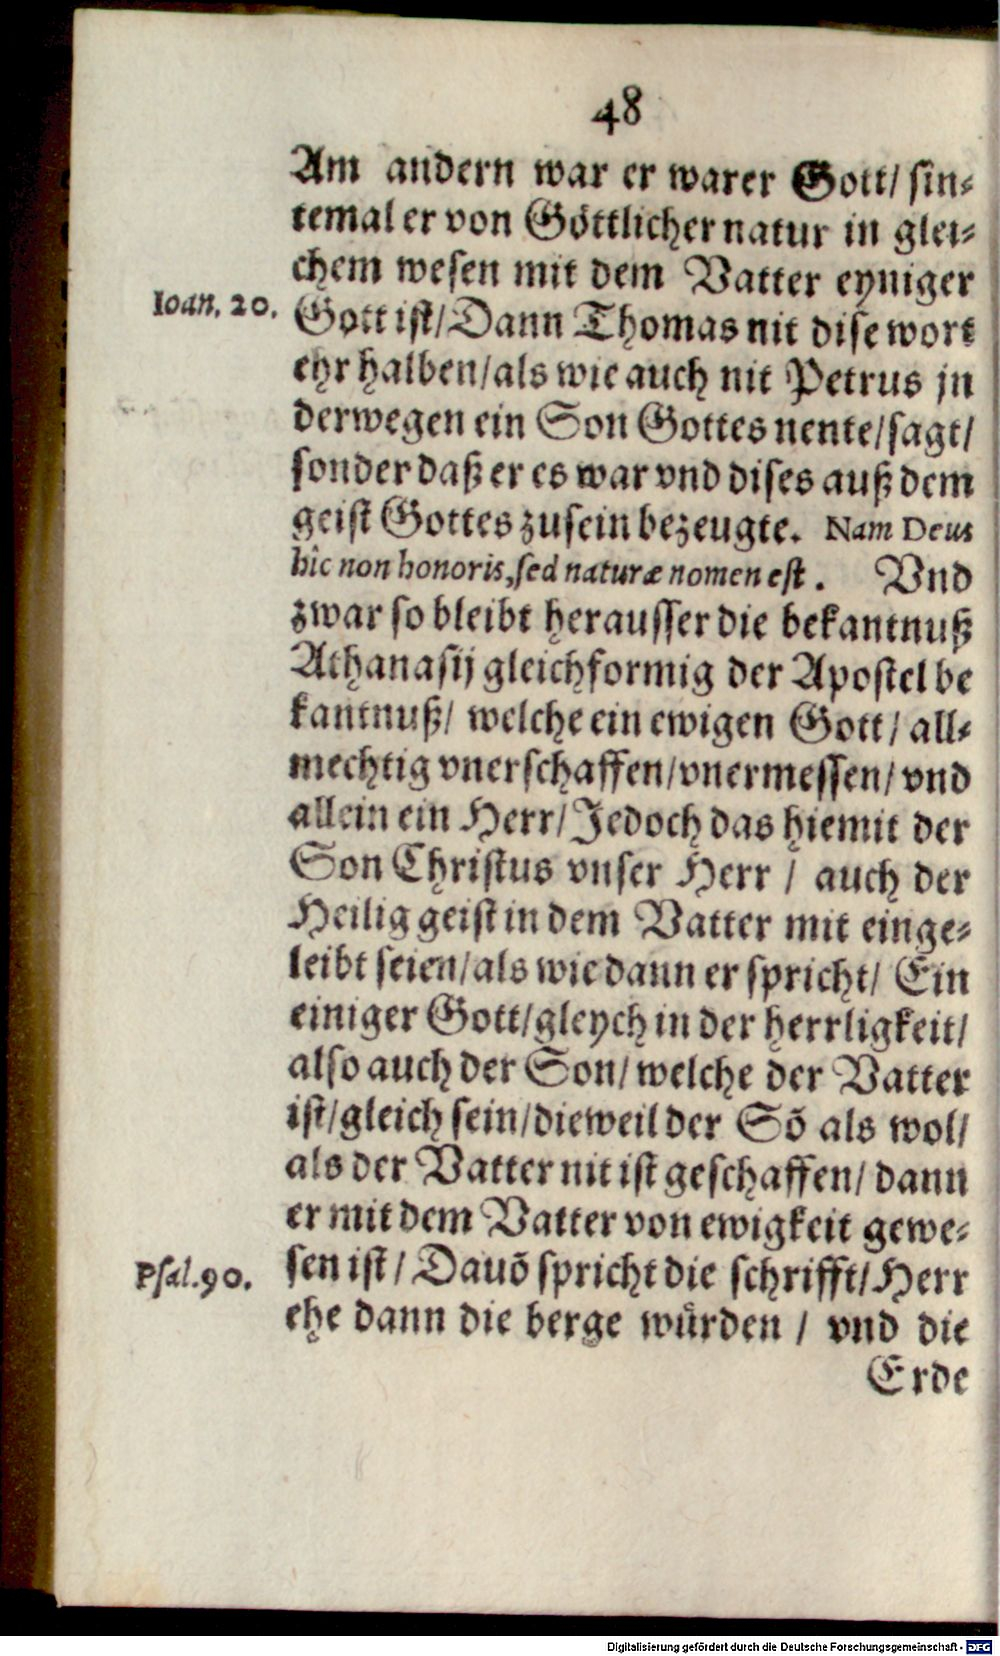 48
Am andern war er warer Gott/ sin⸗
temal er von Göttlicher natur in glei⸗
chem wesen mit dem Vatter eyniger
Ioan. 20.
Gott ist/ Dann Thomas nit dise wort
ehr halben/ als wie auch nit Petrus jn
derwegen ein Son Gottes nente/ sagt/
sonder daß er es war vnd dises auß dem
geist Gottes zusein bezeugte. Nam Deus
hîc non honoris, sed naturæ nomen est. Vnd
zwar so bleibt herausser die bekantnuß
Athanasij gleichformig der Apostel be
kantnuß/ welche ein ewigen Gott/ all⸗
mechtig vnerschaffen/ vnermessen/ vnd
allein ein Herr/ Jedoch das hiemit der
Son Christus vnser Herr / auch der
Heilig geist in dem Vatter mit einge⸗
leibt seien/ als wie dann er spricht/ Ein
einiger Gott/ gleych in der herrligkeit/
also auch der Son/ welche der Vatter
ist/ gleich sein/ dieweil der Sõ als wol/
als der Vatter nit ist geschaffen/ dann
er mit dem Vatter von ewigkeit gewe⸗
Psal. 90.
sen ist/ Dauõ spricht die schrifft/ Herr
ehe dann die berge würden / vnd die
Erde
Digitalisierung gefördert durch die Deutsche Forschungsgemeinschaft - DFG